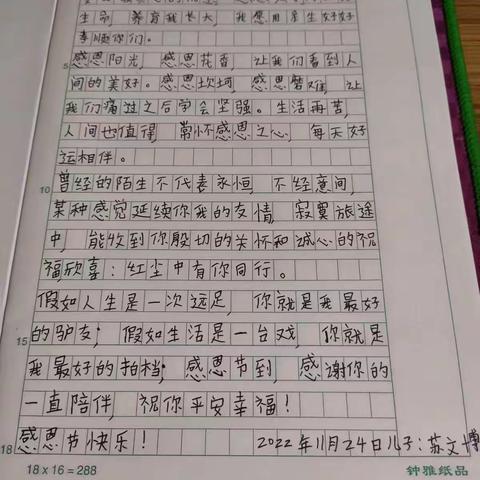 生命, 养育我长大, 我想用余生好好
孝顺你们。
5 感恩阳光, 感恩花香, 让我们看到人
间的美好。感恩坎坷, 感恩磨难, 让
我们痛过之后学会坚强。生活再苦,
人间也值得, 常怀感恩之心, 每天好
运相伴。
10 曾经的陌生不代表永恒, 不经意间,
某种感觉延续你我的友情, 寂寞旅途
中, 能收到你殷切的关怀和诚心的祝
福,欣喜:红尘中有你同行。
假如人生是一次远足, 你就是我最好
15 的驴友; 假如生活是一台戏, 你就是
我最好的拍档; 感恩节到, 感谢你的
一直陪伴, 祝你平安幸福!
18 感恩节快乐! 2022年11月24日儿子:苏文博
18×16=288 钟雅纸品